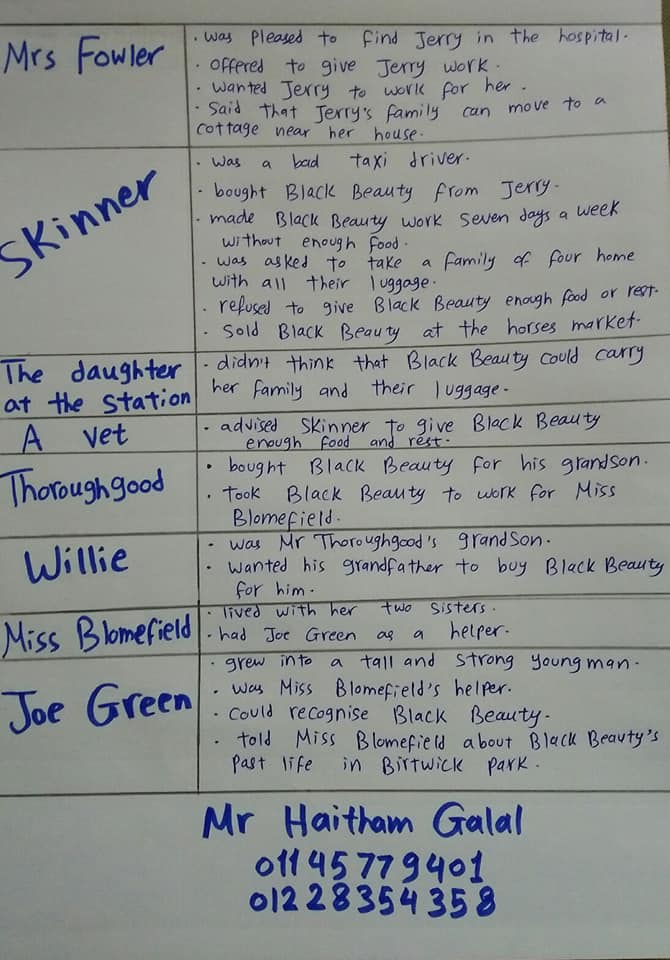 Mrs Fowler
. was pleased to find Jerry in the hospital.
. offered to give Jerry work.
. wanted Jerry to work for her.
. Said that Jerry's family can move to a
cottage near her house.
Skinner
. was a bad taxi driver.
. bought Black Beauty from Jerry.
. made Black Beauty work seven days a week
without enough food.
. was asked to take a family of four home
with all their luggage.
. refused to give Black Beauty enough food or rest.
. Sold Black Beauty at the horses market.
The daughter
at the station
. didn't think that Black Beauty could carry
her family and their luggage.
A vet
. advised Skinner to give Black Beauty
enough food and rest.
Thoroughgood
. bought Black Beauty for his grandson.
. took Black Beauty to work for Miss
Blomefield.
Willie
. was Mr Thoroughgood's grandson.
. wanted his grandfather to buy Black Beauty
for him.
Miss Blomefield
. lived with her two sisters.
. had Joe Green as a helper.
Joe Green
. grew into a tall and strong young man.
. was Miss Blomefield's helper.
. could recognise Black Beauty.
. told Miss Blomefield about Black Beauty's
past life in Birtwick park.
Mr Haitham Galal
01145779401
01228354358